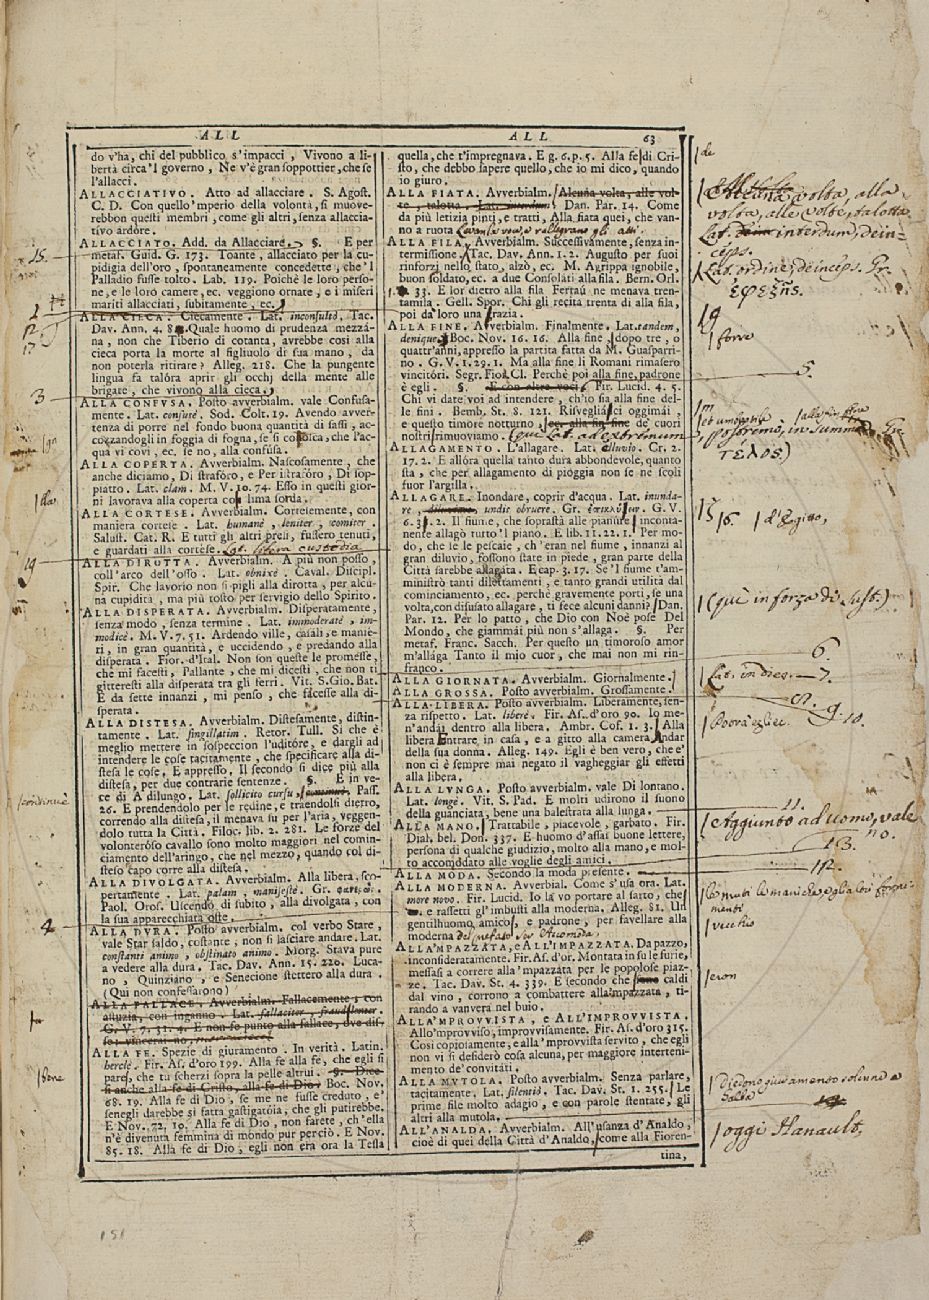 ALL
ALL 63
do v'ha, chi del pubblico s'impacci, Vivono a li-
bertà circa'l governo, Ne v'è gran soppottier, che se
l'allacci.
ALLACCIATIVO. Atto ad allacciare. S. Agost.
C. D. Con quello 'mperio della volontà, si muove-
rebbon questi membri, come gli altri, senza allaccia-
tivo ardore.
ALLACCIATO. Add. da Allacciare. §. E per
metaf. Guid. G. 173. Toante, allacciato per la cu-
pidigia dell'oro, spontaneamente concedette, che 'l
Palladio fusse tolto. Lab. 119. Poichè le loro perso-
ne, e le loro camere, ec. veggiono ornate, e i miseri
mariti allacciati, subitamente, ec.
ALLA CIECA. Ciecamente. Lat. inconsultò. Tac.
Dav. Ann. 4. 8 Quale huomo di prudenza mezzà-
na, non che Tiberio di cotanta, avrebbe così alla
cieca porta la morte al figliuolo di sua mano, da
non poterla ritirare? Alleg. 218. Che la pungente
lingua fa talóra aprir gli occhj della mente alle
brigate, che vivono alla cieca.
ALLA CONFUSA. Posto avverbialm. vale Confusa-
mente. Lat. confusè. Sod. Colt. 19. Avendo avver-
tenza di porre nel fondo buona quantità di sassi, ac-
cozzandogli in foggia di fogna, se si conosca, che l'ac-
qua vi covi, ec. se no, alla confusa.
ALLA COPERTA. Avverbialm. Nascosamente, che
anche diciamo, Di straforo, e Per istrafóro, Di sop-
piatto. Lat. clam. M. V. 10. 74. Esso in questi gior-
ni lavorava alla coperta con lima sorda.
ALLA CORTESE. Avverbialm. Cortesemente, con
maniera cortese. Lat. humanè, leniter, comiter.
Salust. Cat. R. E tutti gli altri presi, fussero tenuti,
e guardati alla cortese. Lat. libera custodia
ALLA DIROTTA. Avverbialm. A più non posso,
coll'arco dell'osso. Lat. obnixè. Caval. Discipl.
Spir. Che lavorio non si pigli alla dirotta, per alcu-
na cupidità, ma più tosto per servigio dello Spirito.
ALLA DISPERATA. Avverbialm. Disperatamente,
senza modo, senza termine. Lat. immoderatè, im-
modicè. M. V. 7. 51. Ardendo ville, casali, e manie-
ri, in gran quantità, e uccidendo, e predando alla
disperata. Fior. d'Ital. Non son queste le promesse,
che mi facesti, Pallante, che mi dicesti, che non ti
gitteresti alla disperata tra gli ferri. Vit. S. Gio. Bat.
E da sette innanzi, mi penso, che facesse alla di-
sperata.
ALLA DISTESA. Avverbialm. Distesamente, distin-
tamente. Lat. singillatim. Retor. Tull. Si che è
meglio mettere in sospeccion l'uditóre, e dargli ad
intendere le cose tacitamente, che specificare alla di-
stesa le cose. E appresso. Il secondo si dice più alla
distesa, per due contrarie sentenze. §. E in ve-
ce di A dilungo. Lat. sollicito cursu, Pass.
26. E prendendolo per le redine, e traendolsi dietro,
correndo alla distesa, il menava su per l'aria, veggen-
dolo tutta la Città. Filoc. lib. 2. 281. Le forze del
volonteróso cavallo sono molto maggiori nel comin-
ciamento dell'aringo, che nel mezzo, quando col di-
steso capo corre alla distesa.
ALLA DIVOLGATA. Avverbialm. Alla libera, sco-
pertamente. Lat. palam, manifestè. Gr.
Paol. Oros. Uscendo di subito, alla divolgata, con
la sua apparecchiata oste.
ALLA DURA. Posto avverbialm. col verbo Stare,
vale Star saldo, costante, non si lasciare andare. Lat.
constanti animo, obstinato animo. Morg. Stava pure
a vedere alla dura. Tac. Dav. Ann. 15. 220. Luca-
no, Quinziano, e Senecione stettero alla dura.
(Qui non confessarono)
ALLA FALLACE. Avverbialm. Fallacemente, con
astuzia, con inganno. Lat. fallaciter, fraudulenter.
G. V. 7. 31. 4. E non fe punto alla fallace, ove dis-
ALLA FE. Spezie di giuramento. In verità. Latin.
herclè. Fir. As. d'oro 199. Alla fe alla fe, che egli si
pare, che tu scherzi sopra la pelle altrui. §. Dice-
si anche alla fe di Cristo, alla fe di Dio. Boc. Nov.
68. 19. Alla fe di Dio, se me ne fusse creduto, e'
senegli darebbe sì fatta gastigatóia, che gli putirebbe.
E Nov. 72, 19. Alla fe di Dio, non farete, ch'ella
n'è divenuta femmina di mondo pur perciò. E Nov.
85. 18. Alla fe di Dio, egli non era ora la Tessa
quella, che t'impregnava. E g. 6. p. 5. Alla fe di Cri-
sto, che debbo sapere quello, che io mi dico, quando
io giuro.
ALLA FIATA. Avverbialm. Alcuna volta, alle vol-
te, talotta, Lat. Dan. Par. 14. Come
da più letizia pinti, e tratti, Alla fiata quei, che van-
no a ruota Levan la voce, e rallegrano gli atti.
ALLA FILA. Avverbialm. Successivamente, senza in-
termissione. Tac. Dav. Ann. 1. 2. Augusto per suoi
rinforzi nello stato, alzò, ec. M. Agrippa ignobile,
buon soldato, ec. a due Consolati alla fila. Bern. Orl.
33. E lor dietro alla fila Ferraù ne menava tren-
tamila. Gell. Spor. Chi gli recita trenta di alla fila,
poi dà loro una grazia.
ALLA FINE. Avverbialm. Finalmente. Lat. tandem,
denique. Boc. Nov. 16. 16. Alla fine, dopo tre, o
quattr'anni, appresso la partita fatta da M. Guasparri-
no. G. V. 1. 29. 1. Ma alla fine li Romani rimasero
vincitóri. Segr. Fior. Cl. Perchè poi alla fine, padrone
è egli. §. E con altre voci. Pir. Lucid. 4. 5.
Chi vi date voi ad intendere, ch'io sia alla fine del-
le fini. Bemb. St. 8. 121. Risvegliàsci oggimái,
e questo timore notturno, ec. alla fin fine de' cuori
nostri rimuoviamo. (qui Lat. ad extremum
ALLAGAMENTO. L'allagare. Lat. eluvio. Cr. 2.
17. 2. E allóra quella tanto dura abbondevole, quanto
sta, che per allagamento di pioggia non se ne scoli
fuor l'argilla.
ALLAGARE. Inondare, coprir d'acqua. Lat. inunda-
re, undis obruere. Gr. G. V.
6. 3. 2. Il fiume, che soprastà alle pianure, inconta-
nente allagò tutto 'l piano. E lib. 11. 22. 1. Per mo-
do, che le le pescaie, ch'eran nel fiume, innanzi al
gran diluvio, fossono state in piede, gran parte della
Città sarebbe allagata. E cap. 3. 17. Se 'l fiume t'am-
ministrò tanti dilettamenti, e tanto grandi utilità dal
cominciamento, ec. perchè gravemente porti, se una
volta, con disusato allagare, ti fece alcuni danni? Dan.
Par. 12. Per lo patto, che Dio con Noè pose Del
Mondo, che giammái più non s'allaga. §. Per
metaf. Franc. Sacch. Per questo un timoroso amor
m'allága Tanto il mio cuor, che mai non mi rin-
franco.
ALLA GIORNATA. Avverbialm. Giornalmente.
ALLA GROSSA. Posto avverbialm. Grossamente.
ALLA LIBERA. Posto avverbialm. Liberamente, sen-
za rispetto. Lat. liberè. Fir. As. d'oro 90. Io me-
n'andái dentro alla libera. Ambr. Cof. 1. 3. Alla
libera Entrare in casa, e a gitto alla camera Andar
della sua donna. Alleg. 149. Egli è ben vero, che e'
non ci è sempre mai negato il vagheggiar gli effetti
alla libera.
ALLA LUNGA. Posto avverbialm. vale Di lontano.
Lat. longè. Vit. S. Pad. E molti udirono il suono
della guanciata, bene una balestrata alla lunga.
ALLA MANO. Trattabile, piacevole, garbato. Fir.
Dial. bel. don. 337. E huomo d'assai buone lettere,
persona di qualche giudizio, molto alla mano, e mol-
to accomodato alle voglie degli amici.
ALLA MODA. Secondo la moda presente.
ALLA MODERNA. Avverbial. Come s'usa ora. Lat.
more novo. Fir. Lucid. Io la vo portare al sarto, che
e rassetti gl'imbusti alla moderna. Alleg. 81. Un
gentilhuomo, amico, e padrone, per favellare alla
moderna
ALLA'MPAZZATA, e ALL'IMPAZZATA. Da pazzo,
inconsideratamente. Fir. As. d'or. Montata in su le furie,
messasi a correre alla 'mpazzata per le popolose piaz-
ze. Tac. Dav. St. 4. 339. E secondo che caldi
dal vino, corrono a combattere alla 'mpazzata, ti-
rando a vanvera nel buio.
ALLA'MPROVVISTA, e ALL'IMPROVVISTA.
Allo 'mprovviso, improvvisamente. Fir. As. d'oro 315.
Così copiosamente, e alla 'mprovvista servito, che egli
non vi si desiderò cosa alcuna, per maggiore interteni-
mento de' convitáti.
ALLA MUTOLA. Posto avverbialm. Senza parlare,
tacitamente. Lat. silentiò. Tac. Dav. St. 1. 255. Le
prime file molto adagio, e con parole stentate, gli
altri alla mutola.
ALL'ANALDA. Avverbialm. All'usanza d'Analdo,
cioè di quei della Città d'Analdo, come alla Fioren-
tina,
15.
2
12
17
3
gn
lla
19
continuè
4
bene
de
volta, alla
volta, alle volte, talotta
Lat. interdum, dein-
ceps.
Lat. ordine, deinceps. Gr.
ἐφεξῆς.
forre
5.
m
posoremo, in summa. Gr.
τέλος)
15 16. d'Egitto,
(quì in forza di sust.)
6.
Lat. in dies. 7.
8.
9. 10.
11.
Aggiunto ad uomo, vale
no.
13.
12.
vecchio
eron
Dicono giuramento solenne e
oggi Hanault,
151